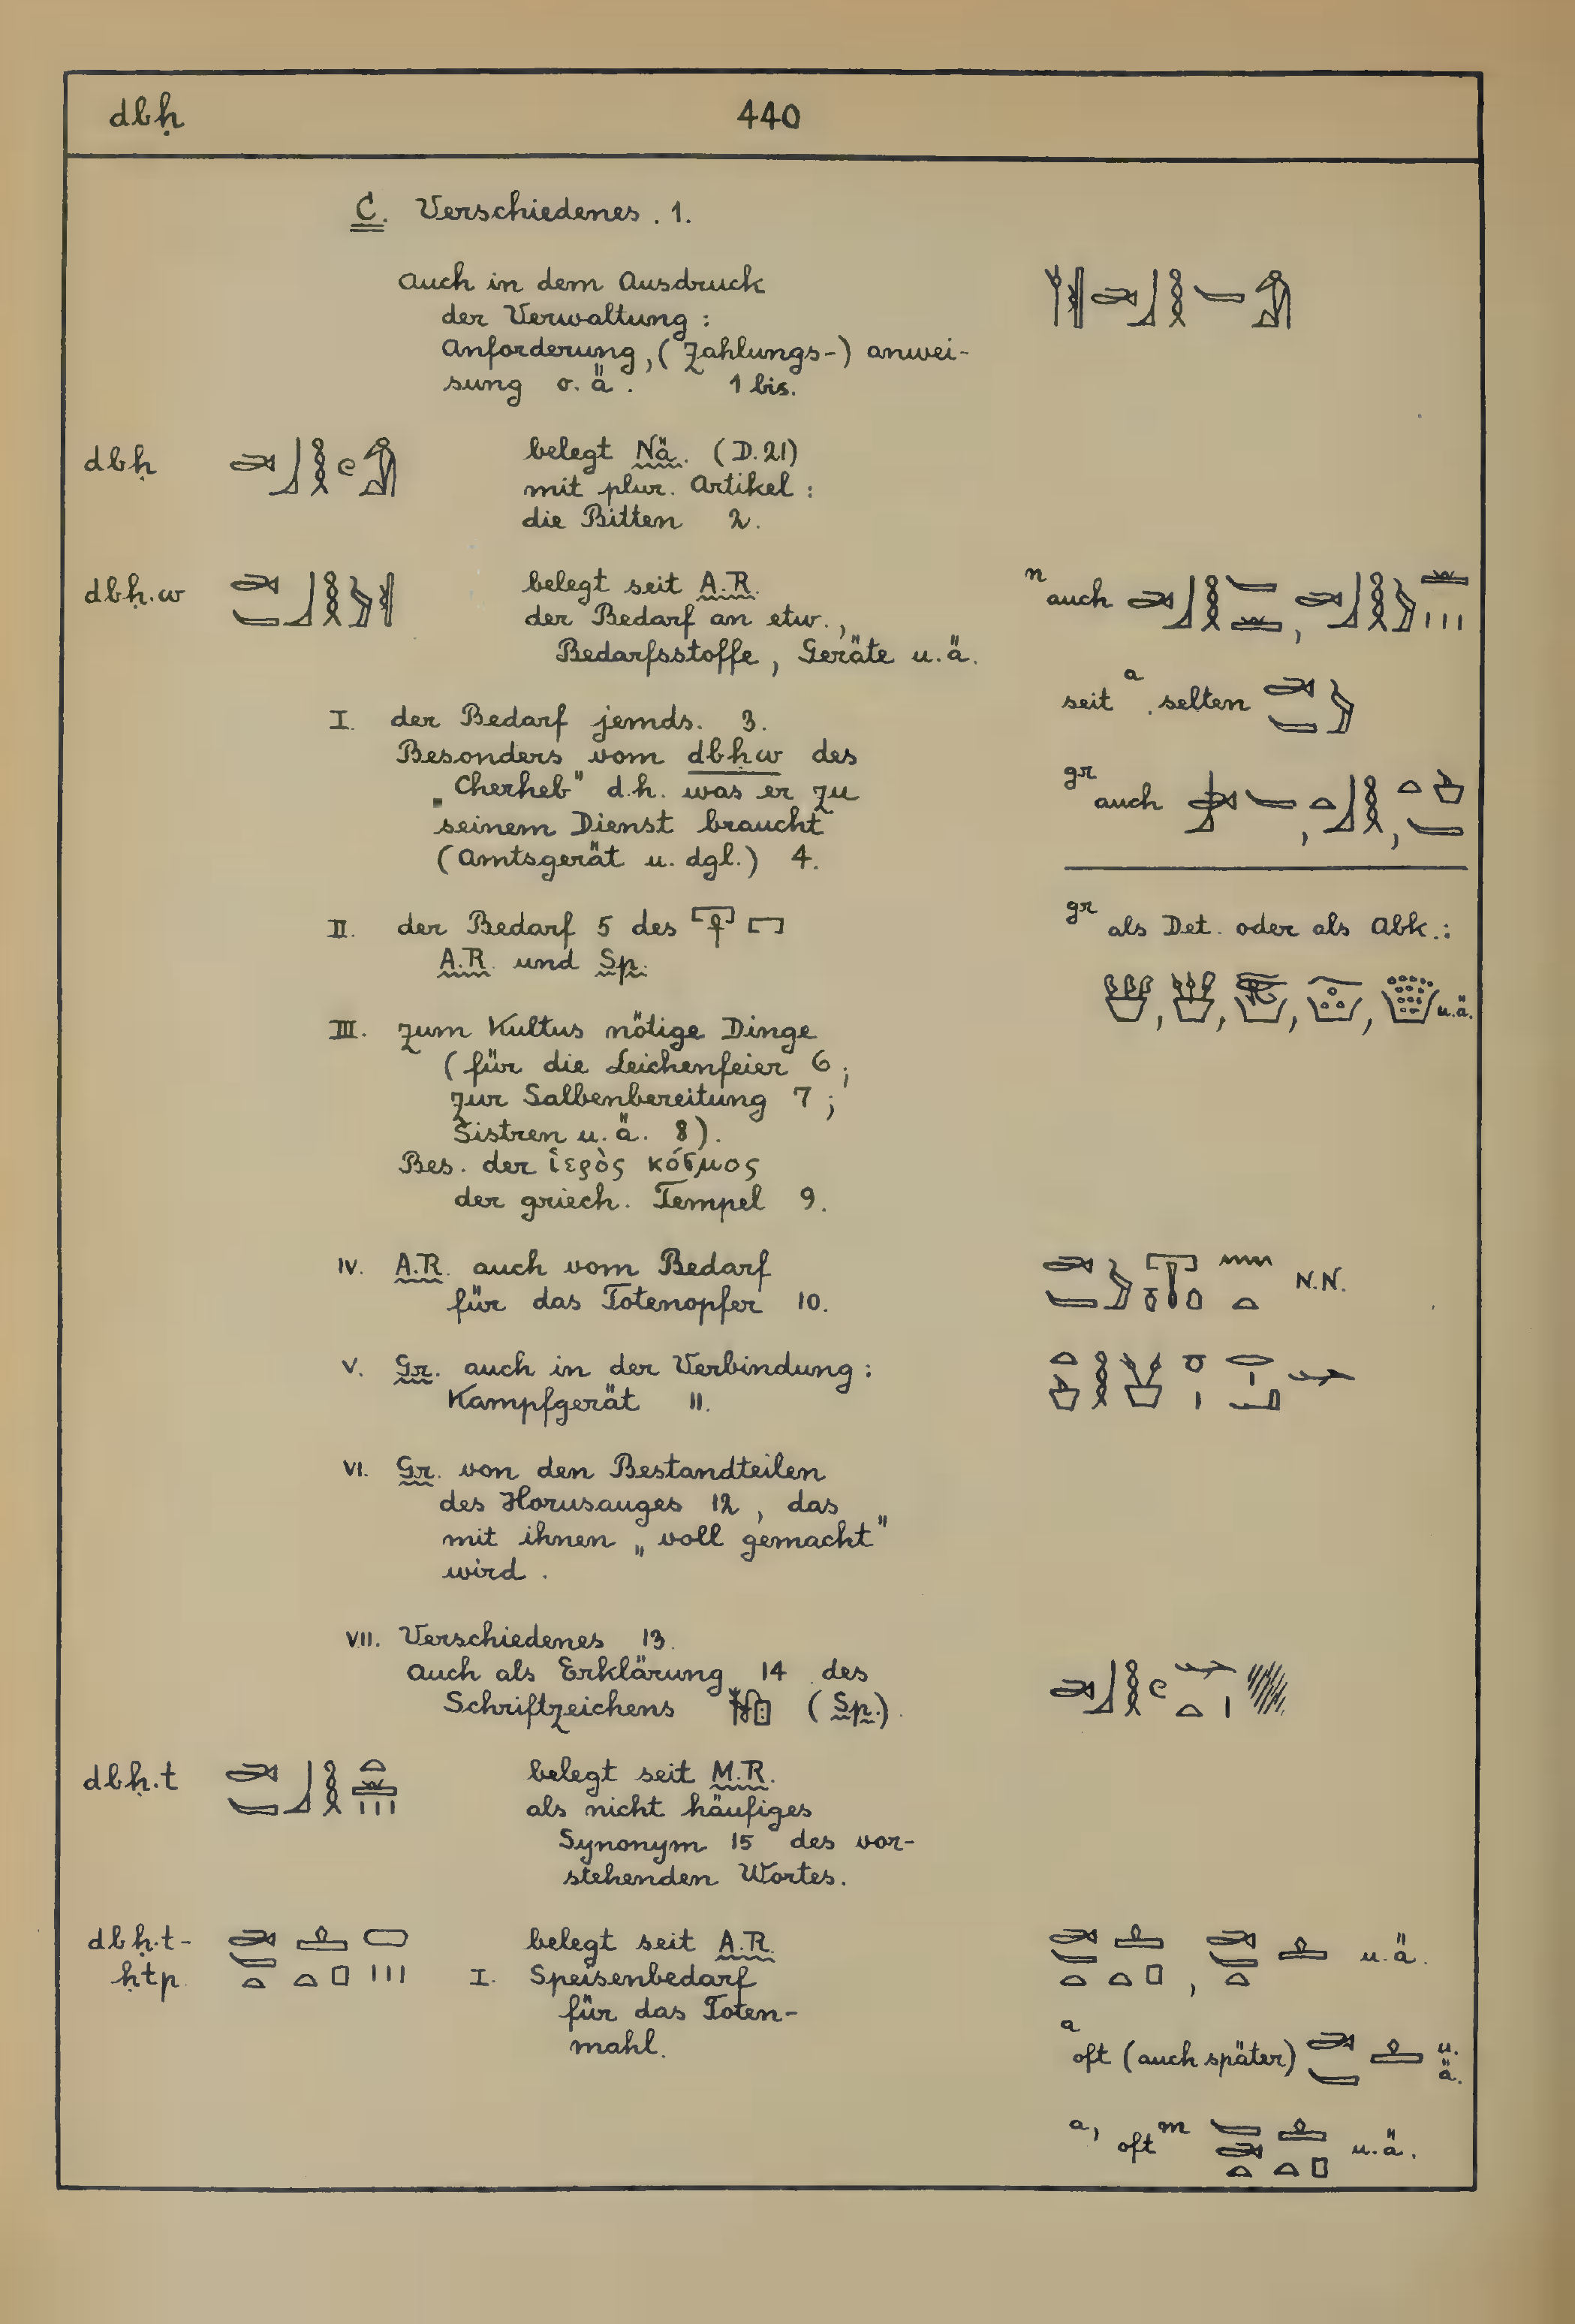 dbḥ 440
C. Verschiedenes. 1.
auch in dem Ausdruck
der Verwaltung:
Anforderung, (Zahlungs-) anwei-
sung o. ä. 1 bis.
dbḥ belegt Nä. (D. 21)
mit plur. Artikel:
die Bitten 2.
dbḥ.w belegt seit A.R.
der Bedarf an etw.,
Bedarfsstoffe, Geräte u. ä.
n auch , 
seit a. selten
gr auch , ,
gr als Det. oder als Abk.:
, , , , u. ä.
I. der Bedarf jemds. 3.
Besonders vom dbḥw des
„Cherheb" d. h. was er zu
seinem Dienst braucht
(Amtsgerät u. dgl.) 4.
II. der Bedarf 5 des
A.R. und Sp.
III. zum Kultus nötige Dinge
(für die Leichenfeier 6;
zur Salbenbereitung 7;
Sistren u. ä. 8).
Bes. der ἱερὸς κόσμος
der griech. Tempel 9.
IV. A.R. auch vom Bedarf
für das Totenopfer 10.
N.N.
V. Gr. auch in der Verbindung:
Kampfgerät 11.
VI. Gr. von den Bestandteilen
des Horusauges 12, das
mit ihnen „voll gemacht"
wird.
VII. Verschiedenes 13.
auch als Erklärung 14 des
Schriftzeichens (Sp.).
dbḥ.t belegt seit M.R.
als nicht häufiges
Synonym 15 des vor-
stehenden Wortes.
dbḥ.t-
ḥtp belegt seit A.R.
I. Speisenbedarf
für das Toten-
mahl.
, u. ä.
a oft (auch später) u. ä.
a, oft m u. ä.